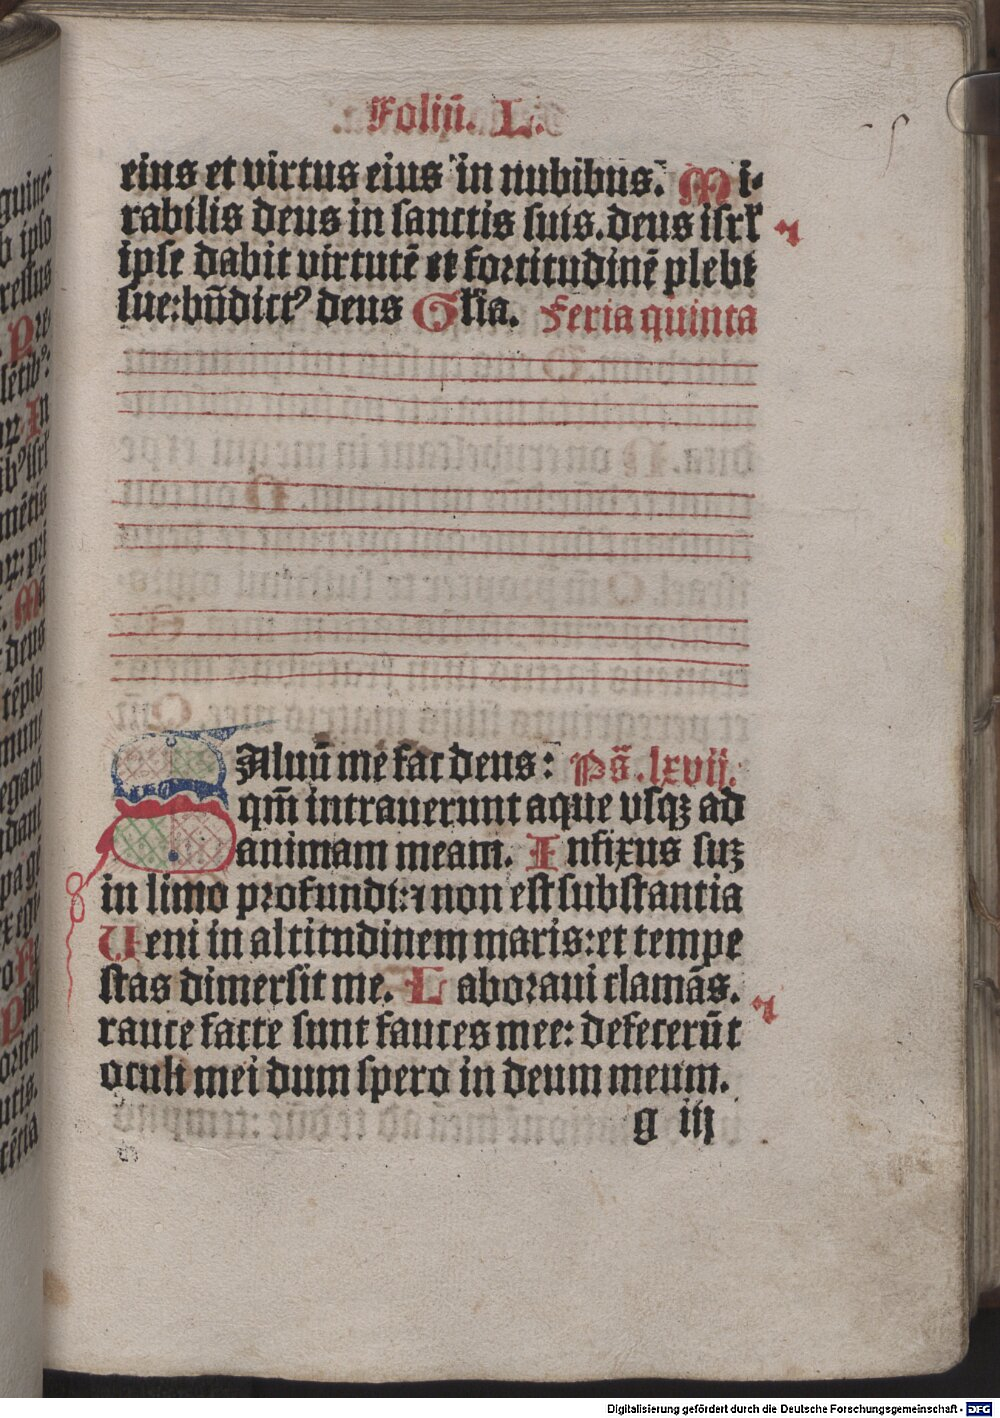 Foliū. L.
eius et virtus eius in nubibus. Mi-
rabilis deus in sanctis suis. deus isrl̄
ipse dabit virtutē et fortitudinē plebi
sue: bn̄dictꝰ deus Gl̄ia. Feria quinta
SAluū me fac deus: Ps̄. lxvij.
qm̄ intrauerunt aque vsqꝫ ad
animam meam. Infixus suꝫ
in limo profundi: ⁊ non est substantia
Ueni in altitudinem maris: et tempe
stas dimersit me. Laboraui clamās.
rauce facte sunt fauces mee: defecerūt
oculi mei dum spero in deum meum.
g iij
Digitalisierung gefördert durch die Deutsche Forschungsgemeinschaft - DFG